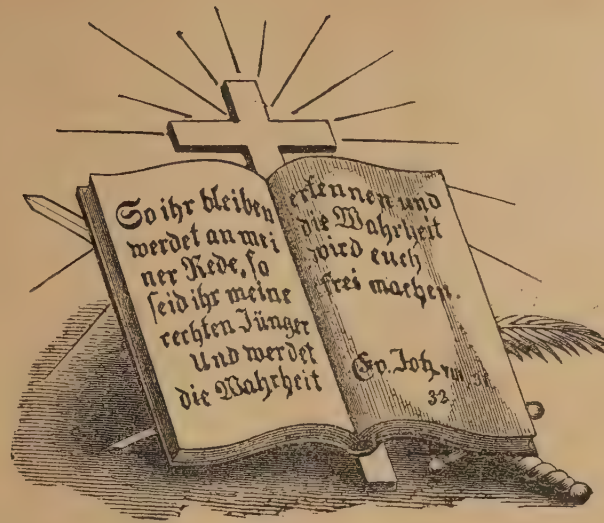 So ihr bleiben
werdet an mei
ner Rede, so
seid ihr meine
rechten Jünger
Und werdet
die Wahrheit
erkennen und
die Wahrheit
wird euch
frei machen.
Ev. Joh. VIII, 31
32.